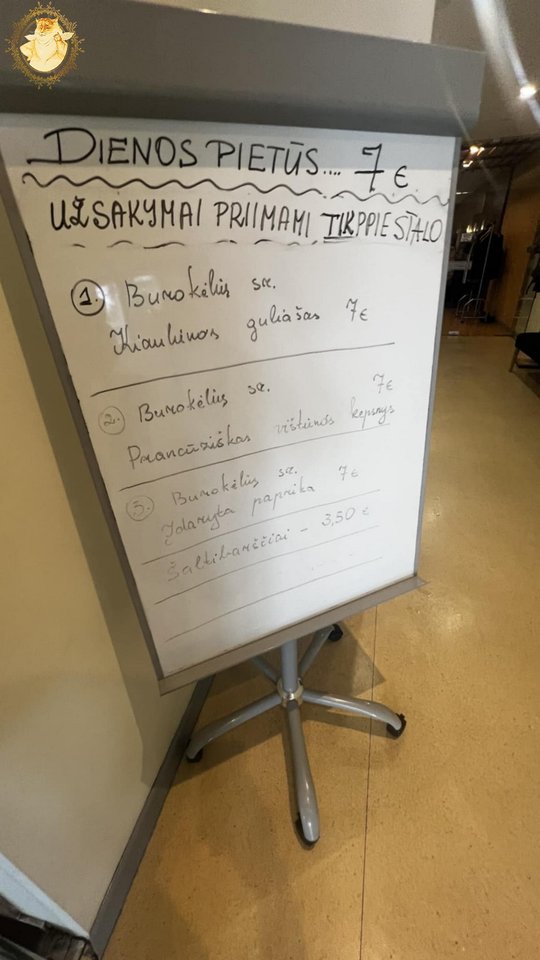 DIENOS PIETŪS.... 7 €
UŽSAKYMAI PRIIMAMI TIK PPIE STALO
1. Burokėlių sr.
Kiaulienos guliašas 7€
2. Burokėlių sr. 7€
Prancūziškas vištienos kepsnys
3. Burokėlių sr.
Įdaryta paprika 7€
Šaltibarščiai - 3,50 €